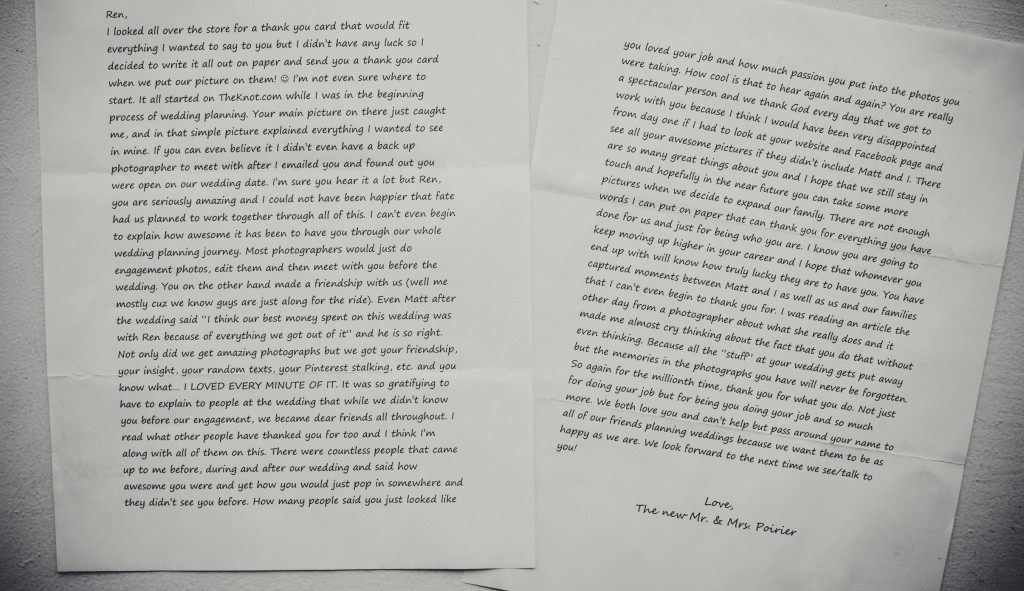 Ren,
I looked all over the store for a thank you card that would fit
everything I wanted to say to you but I didn't have any luck so I
decided to write it all out on paper and send you a thank you card
when we put our picture on them! ☺ I'm not even sure where to
start. It all started on TheKnot.com while I was in the beginning
process of wedding planning. Your main picture on there just caught
me, and in that simple picture explained everything I wanted to see
in mine. If you can even believe it I didn't even have a back up
photographer to meet with after I emailed you and found out you
were open on our wedding date. I'm sure you hear it a lot but Ren,
you are seriously amazing and I could not have been happier that fate
had us planned to work together through all of this. I can't even begin
to explain how awesome it has been to have you through our whole
wedding planning journey. Most photographers would just do
engagement photos, edit them and then meet with you before the
wedding. You on the other hand made a friendship with us (well me
mostly cuz we know guys are just along for the ride). Even Matt after
the wedding said "I think our best money spent on this wedding was
with Ren because of everything we got out of it" and he is so right.
Not only did we get amazing photographs but we got your friendship,
your insight, your random texts, your Pinterest stalking, etc. and you
know what... I LOVED EVERY MINUTE OF IT. It was so gratifying to
have to explain to people at the wedding that while we didn't know
you before our engagement, we became dear friends all throughout. I
read what other people have thanked you for too and I think I'm
along with all of them on this. There were countless people that came
up to me before, during and after our wedding and said how
awesome you were and yet how you would just pop in somewhere and
they didn't see you before. How many people said you just looked like
you loved your job and how much passion you put into the photos you
were taking. How cool is that to hear again and again? You are really
a spectacular person and we thank God every day that we got to
work with you because I think I would have been very disappointed
from day one if I had to look at your website and Facebook page and
see all your awesome pictures if they didn't include Matt and I. There
are so many great things about you and I hope that we still stay in
touch and hopefully in the near future you can take some more
pictures when we decide to expand our family. There are not enough
words I can put on paper that can thank you for everything you have
done for us and just for being who you are. I know you are going to
keep moving up higher in your career and I hope that whomever you
end up with will know how truly lucky they are to have you. You have
captured moments between Matt and I as well as us and our families
that I can't even begin to thank you for. I was reading an article the
other day from a photographer about what she really does and it
made me almost cry thinking about the fact that you do that without
even thinking. Because all the "stuff" at your wedding gets put away
but the memories in the photographs you have will never be forgotten.
So again for the millionth time, thank you for what you do. Not just
for doing your job but for being you doing your job and so much
more. We both love you and can't help but pass around your name to
all of our friends planning weddings because we want them to be as
happy as we are. We look forward to the next time we see/talk to
you!
Love,
The new Mr. & Mrs. Poirier